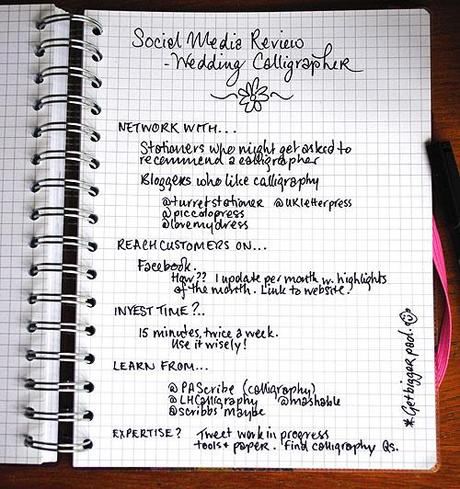 Social Media Review
- Wedding Calligrapher
NETWORK WITH...
Stationers who might get asked to
recommend a calligrapher
Bloggers who like calligraphy
@turretstationer @UKletterpress
@piccolopress
@lovemydress
REACH CUSTOMERS ON...
Facebook.
How?? 1 update per month w. highlights
of the month. Link to website.
INVEST TIME?..
15 minutes, twice a week.
Use it wisely!
LEARN FROM...
@PAScribe (calligraphy)
@LHCalligraphy @mashable
@scribbs maybe
EXPERTISE? Tweet work in progress
tools + paper. Find calligraphy Qs.
* Get bigger pad.